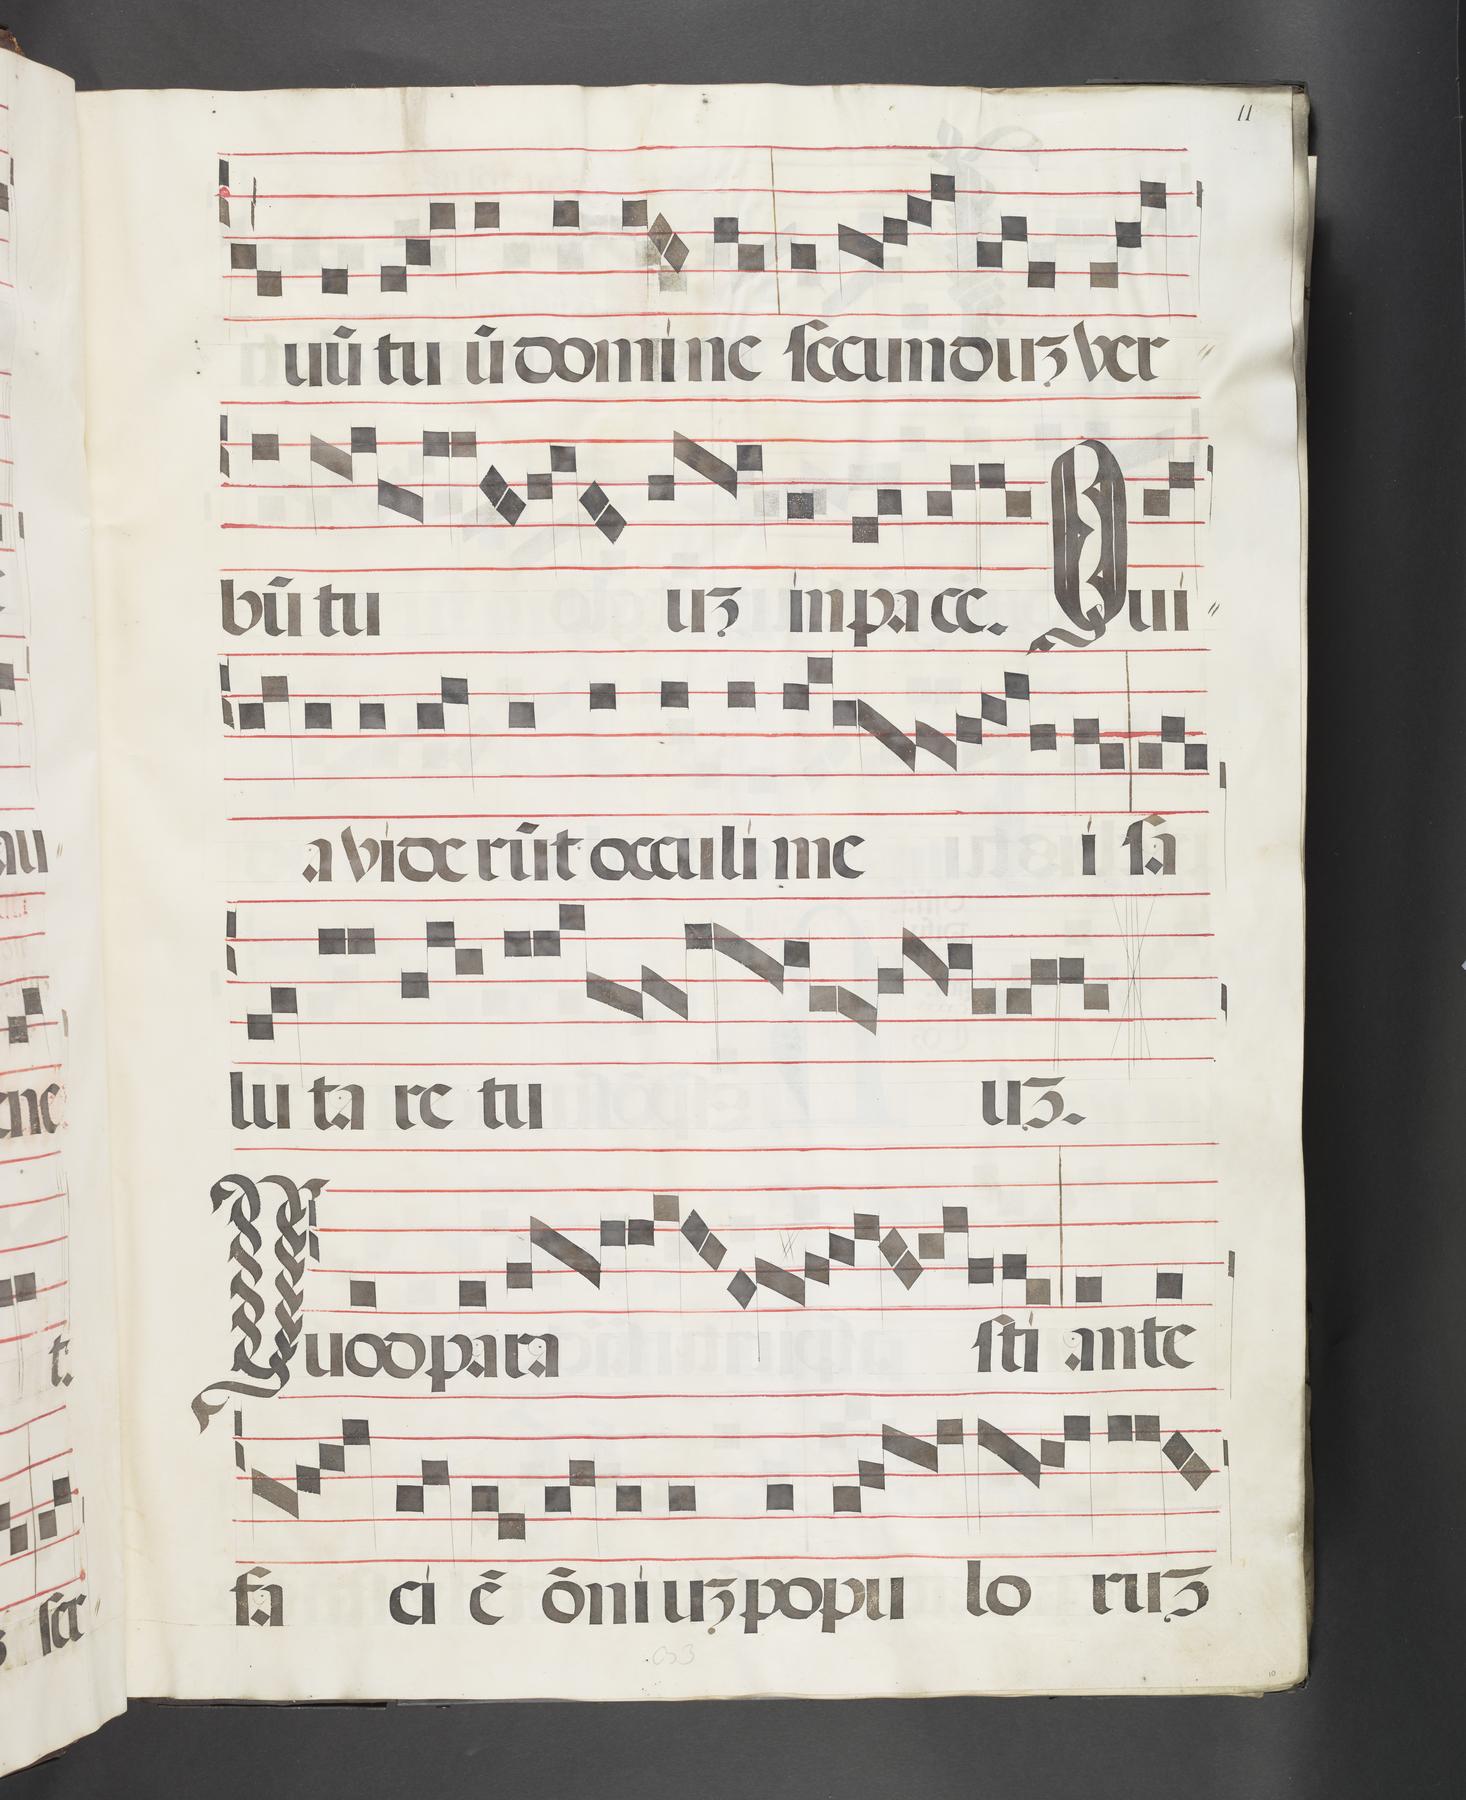 11
uū tu ū domine secunduʒ ver
bū tu uʒ in pa ce. Qui
a viderūt occuli me i sa
lu ta re tu uʒ.
Quod para sti ante
fa ci ē ōniuʒ popu lo ruʒ